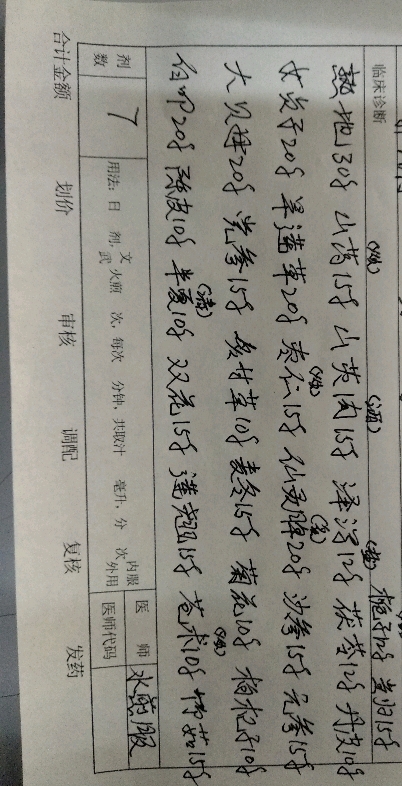 临床诊断
栀子12g 当归15g
(炒) (酒) (盐)
熟地30g 山药15g 山萸肉15g 泽泻12g 茯苓12g 丹皮10g
(炒) (炙)
女贞子20g 旱莲草20g 枣仁15g 仙灵脾20g 沙参15g 元参15g
大贝母20g 党参15g 甘草10g 麦冬15g 菊花10g 枸杞子10g
(清) (炒)
20g 陈皮10g 半夏10g 双花15g 连翘15g 苍术10g 15g
剂数 7 用法：日 剂，文武火煎 次，每次 分钟，共取汁 毫升，分 次 内服外用 医师 水煎服
医师代码
合计金额 划价 审核 调配 复核 发药